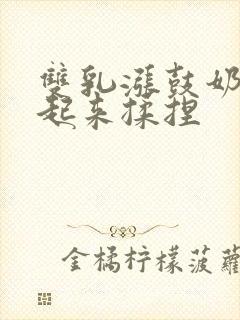 雙乳漲鼓奶
起来揉捏
金橘柠檬菠蘿